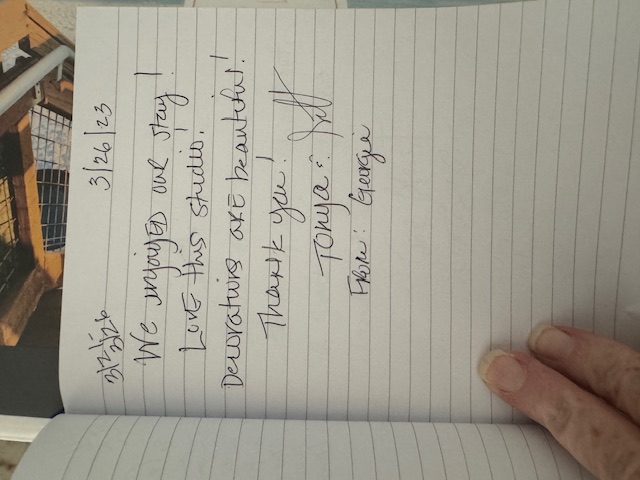 3/21-3/26 3/26/23
We enjoyed our stay!
Love this studio!
Decorations are beautiful!
Thank you!
Tonya & Jeff
From: Georgia